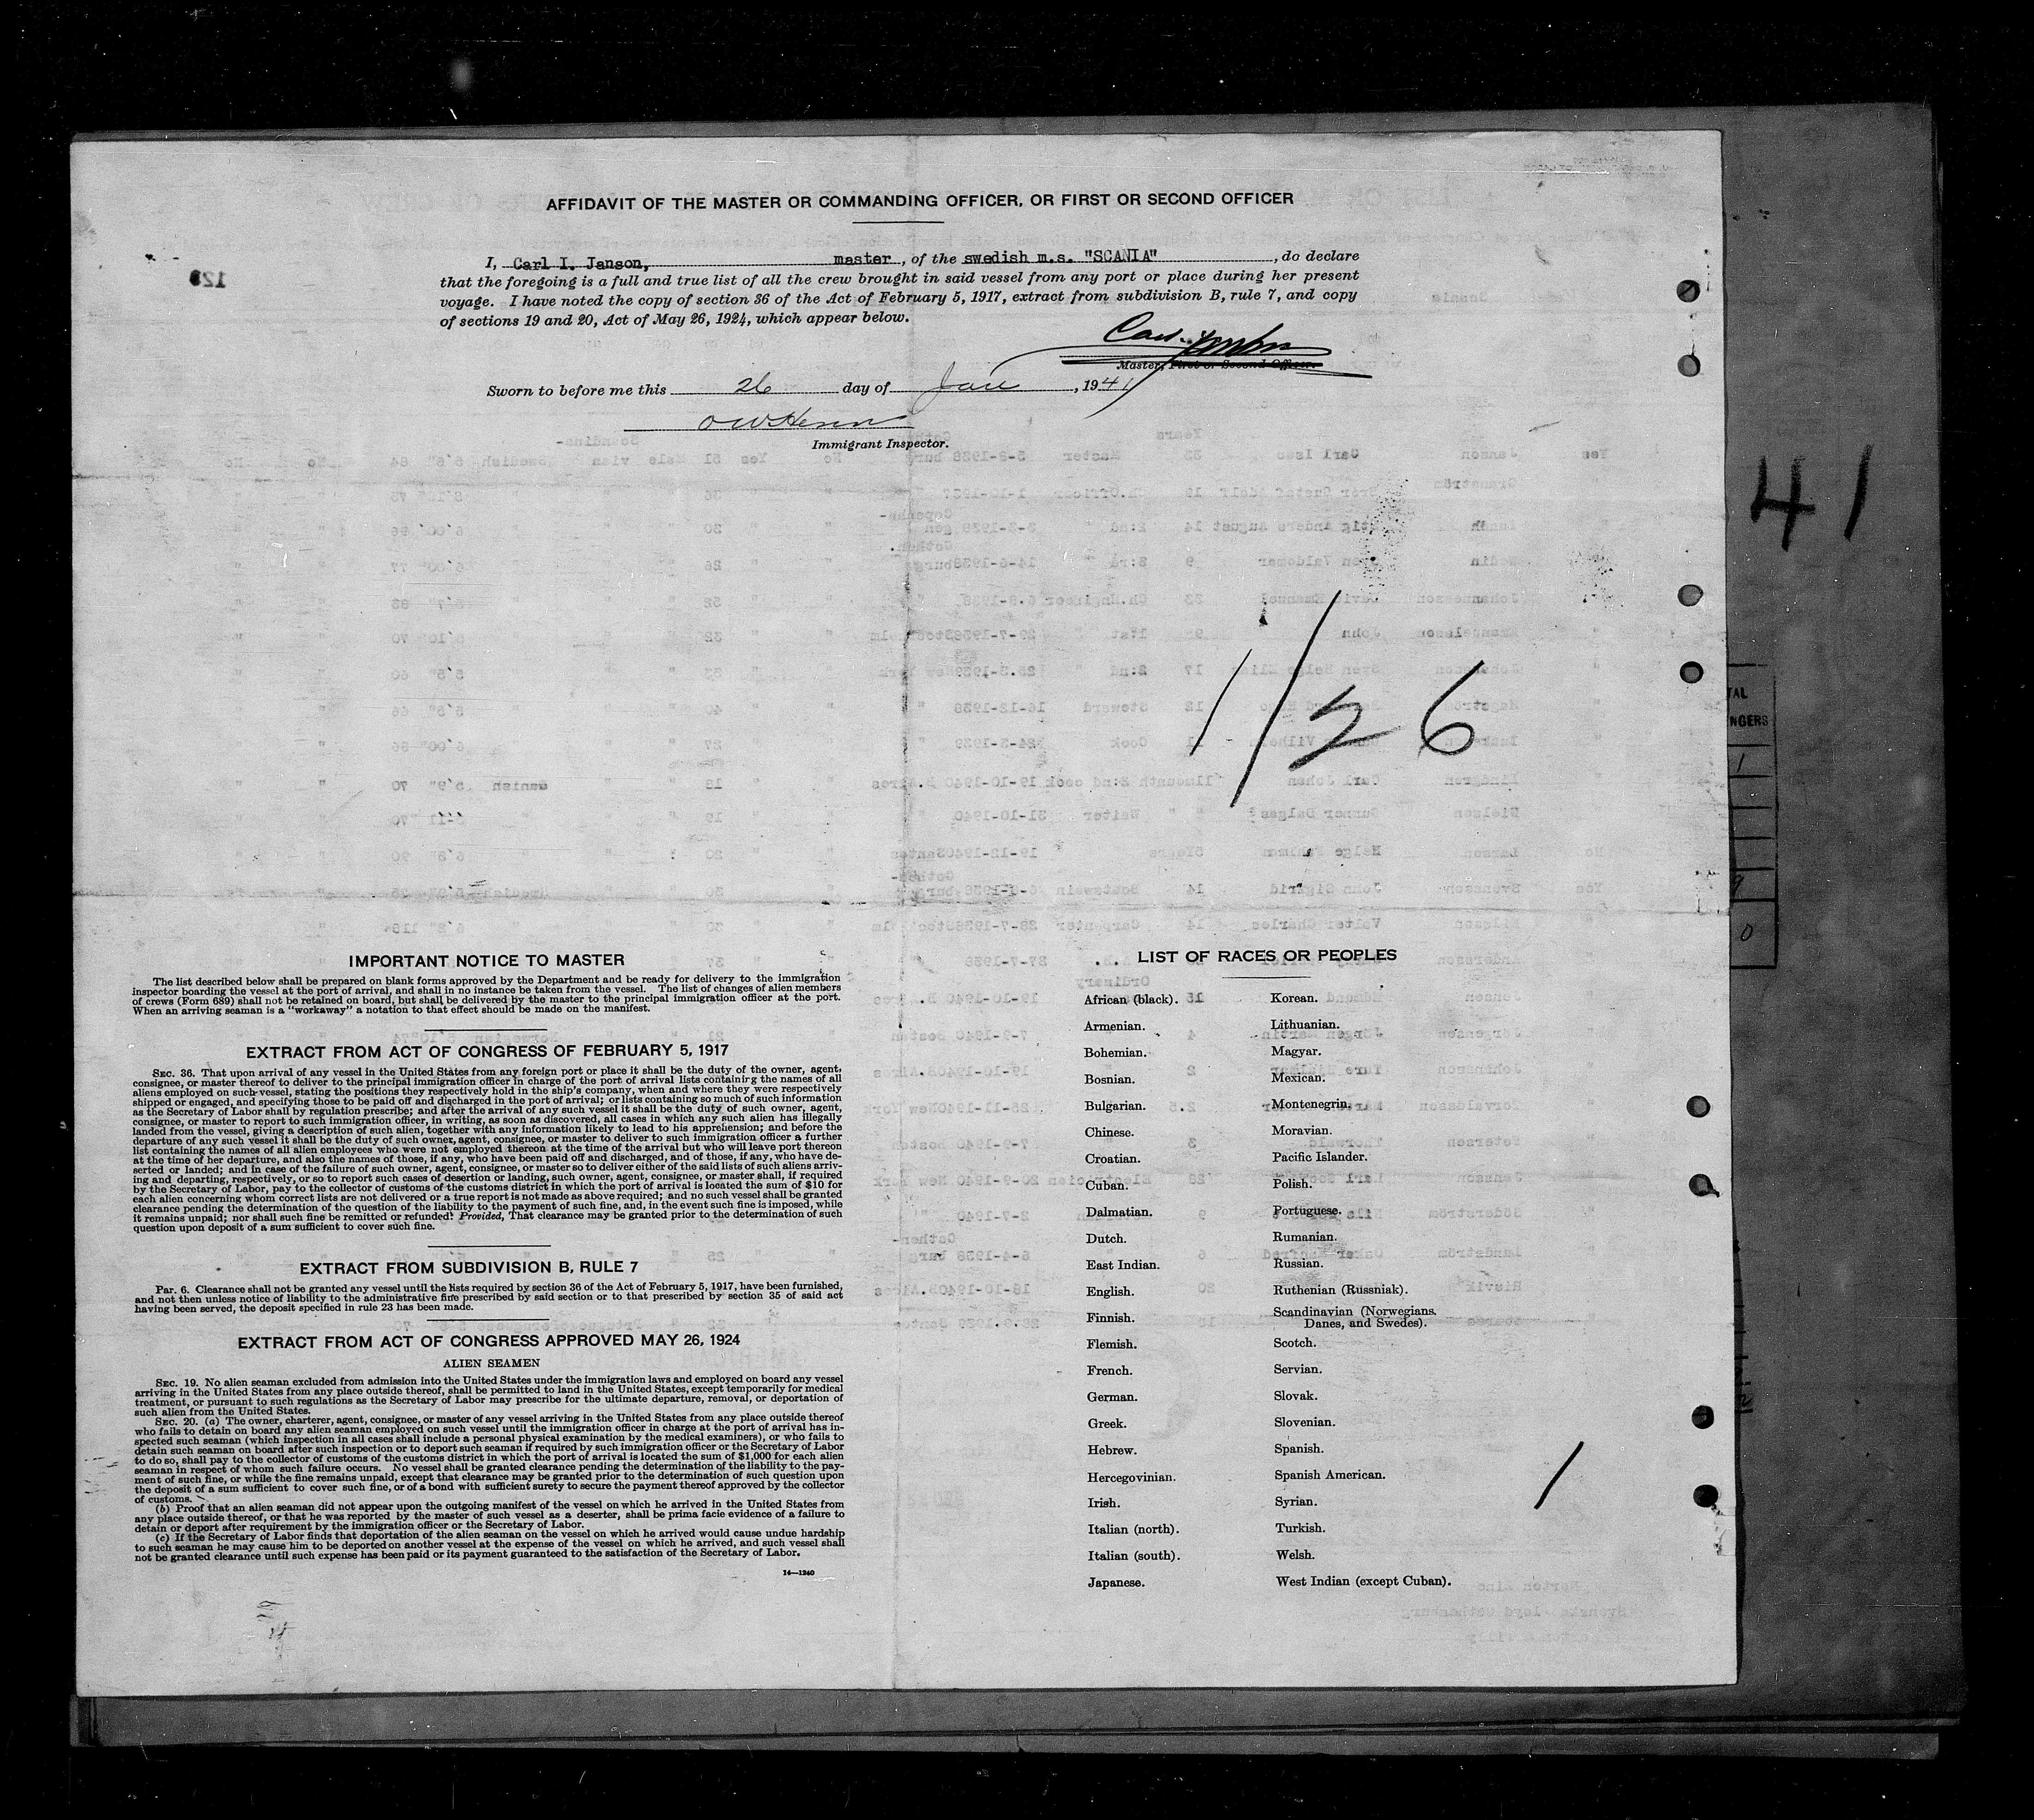 AFFIDAVIT OF THE MASTER OR COMMANDING OFFICER, OR FIRST OR SECOND OFFICER
I, Carl I. Janson, master, of the swedish m.s. "SCANIA", do declare
that the foregoing is a full and true list of all the crew brought in said vessel from any port or place during her present
voyage. I have noted the copy of section 36 of the Act of February 5, 1917, extract from subdivision B, rule 7, and copy
of sections 19 and 20, Act of May 26, 1924, which appear below.
Master, First or Second Officer.
Sworn to before me this 26 day of Jan, 1941
Immigrant Inspector.
41
1/26
IMPORTANT NOTICE TO MASTER
The list described below shall be prepared on blank forms approved by the Department and be ready for delivery to the immigration
inspector boarding the vessel at the port of arrival, and shall in no instance be taken from the vessel. The list of changes of alien members
of crews (Form 689) shall not be retained on board, but shall be delivered by the master to the principal immigration officer at the port.
When an arriving seaman is a "workaway" a notation to that effect should be made on the manifest.
EXTRACT FROM ACT OF CONGRESS OF FEBRUARY 5, 1917
SEC. 36. That upon arrival of any vessel in the United States from any foreign port or place it shall be the duty of the owner, agent,
consignee, or master thereof to deliver to the principal immigration officer in charge of the port of arrival lists containing the names of all
aliens employed on such vessel, stating the positions they respectively hold in the ship's company, when and where they were respectively
shipped or engaged, and specifying those to be paid off and discharged in the port of arrival; or lists containing so much of such information
as the Secretary of Labor shall by regulation prescribe; and after the arrival of any such vessel it shall be the duty of such owner, agent,
consignee, or master to report to such immigration officer, in writing, as soon as discovered, all cases in which any such alien has illegally
landed from the vessel, giving a description of such alien, together with any information likely to lead to his apprehension; and before the
departure of any such vessel it shall be the duty of such owner, agent, consignee, or master to deliver to such immigration officer a further
list containing the names of all alien employees who were not employed thereon at the time of the arrival but who will leave port thereon
at the time of her departure, and also the names of those, if any, who have been paid off and discharged, and of those, if any, who have de-
serted or landed; and in case of the failure of such owner, agent, consignee, or master so to deliver either of the said lists of such aliens arriv-
ing and departing, respectively, or so to report such cases of desertion or landing, such owner, agent, consignee, or master shall, if required
by the Secretary of Labor, pay to the collector of customs of the customs district in which the port of arrival is located the sum of $10 for
each alien concerning whom correct lists are not delivered or a true report is not made as above required; and no such vessel shall be granted
clearance pending the determination of the question of the liability to the payment of such fine, and, in the event such fine is imposed, while
it remains unpaid; nor shall such fine be remitted or refunded: Provided, That clearance may be granted prior to the determination of such
question upon deposit of a sum sufficient to cover such fine.
EXTRACT FROM SUBDIVISION B, RULE 7
Par. 6. Clearance shall not be granted any vessel until the lists required by section 36 of the Act of February 5, 1917, have been furnished,
and not then unless notice of liability to the administrative fine prescribed by said section or to that prescribed by section 35 of said act
having been served, the deposit specified in rule 23 has been made.
EXTRACT FROM ACT OF CONGRESS APPROVED MAY 26, 1924
ALIEN SEAMEN
SEC. 19. No alien seaman excluded from admission into the United States under the immigration laws and employed on board any vessel
arriving in the United States from any place outside thereof, shall be permitted to land in the United States, except temporarily for medical
treatment, or pursuant to such regulations as the Secretary of Labor may prescribe for the ultimate departure, removal, or deportation of
such alien from the United States.
SEC. 20. (a) The owner, charterer, agent, consignee, or master of any vessel arriving in the United States from any place outside thereof
who fails to detain on board any alien seaman employed on such vessel until the immigration officer in charge at the port of arrival has in-
spected such seaman (which inspection in all cases shall include a personal physical examination by the medical examiners), or who fails to
detain such seaman on board after such inspection or to deport such seaman if required by such immigration officer or the Secretary of Labor
to do so, shall pay to the collector of customs of the customs district in which the port of arrival is located the sum of $1,000 for each alien
seaman in respect of whom such failure occurs. No vessel shall be granted clearance pending the determination of the liability to the pay-
ment of such fine, or while the fine remains unpaid, except that clearance may be granted prior to the determination of such question upon
the deposit of a sum sufficient to cover such fine, or of a bond with sufficient surety to secure the payment thereof approved by the collector
of customs.
(b) Proof that an alien seaman did not appear upon the outgoing manifest of the vessel on which he arrived in the United States from
any place outside thereof, or that he was reported by the master of such vessel as a deserter, shall be prima facie evidence of a failure to
detain or deport after requirement by the immigration officer or the Secretary of Labor.
(c) If the Secretary of Labor finds that deportation of the alien seaman on the vessel on which he arrived would cause undue hardship
to such seaman he may cause him to be deported on another vessel at the expense of the vessel on which he arrived, and such vessel shall
not be granted clearance until such expense has been paid or its payment guaranteed to the satisfaction of the Secretary of Labor.
14—1240
LIST OF RACES OR PEOPLES
African (black).
Armenian.
Bohemian.
Bosnian.
Bulgarian.
Chinese.
Croatian.
Cuban.
Dalmatian.
Dutch.
East Indian.
English.
Finnish.
Flemish.
French.
German.
Greek.
Hebrew.
Hercegovinian.
Irish.
Italian (north).
Italian (south).
Japanese.
Korean.
Lithuanian.
Magyar.
Mexican.
Montenegrin.
Moravian.
Pacific Islander.
Polish.
Portuguese.
Rumanian.
Russian.
Ruthenian (Russniak).
Scandinavian (Norwegians,
Danes, and Swedes).
Scotch.
Servian.
Slovak.
Slovenian.
Spanish.
Spanish American.
Syrian.
Turkish.
Welsh.
West Indian (except Cuban).
1